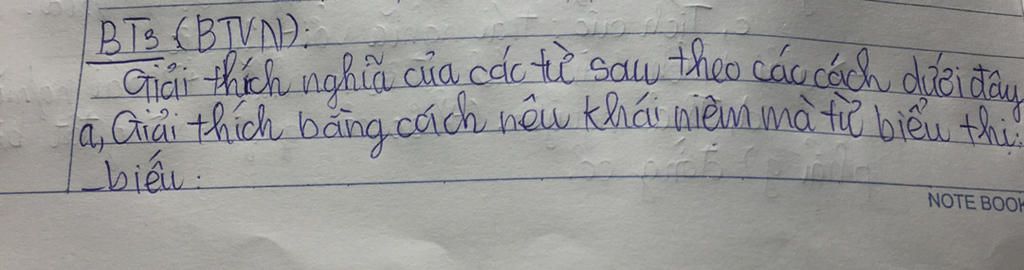 BT3 (BTVN):
Giải thích nghĩa của các từ sau theo các cách dưới đây
a, Giải thích bằng cách nêu khái niệm mà từ biểu thị:
_biếu:
NOTE BOOK